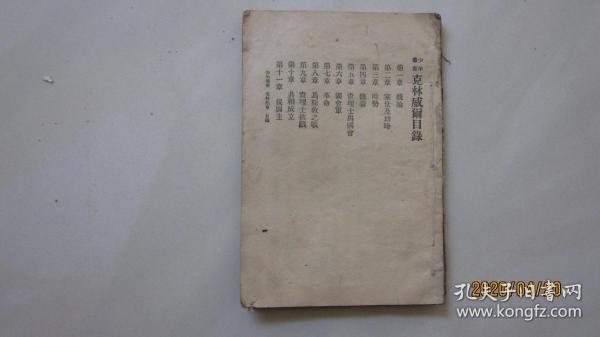 少年叢書 克林威爾目錄
第一章 緒論
第二章 家世及幼時
第三章 時勢
第四章
第五章 查理士與國會
第六章 國會軍
第七章 革命
第八章 爲敗之
第九章 查理士
第十章 共和成立
第十一章 護國主
少年叢書 克林威爾 目錄
2020/04/10
孔夫子旧书网
www.kongfz.com